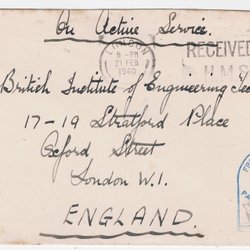 On Active Service.
LONDON
8 - PM
21 FEB
1940
RECEIVED
H M S
British Institute of Engineering
17-19 Stratford Place
Oxford Street
London W.1.
ENGLAND.